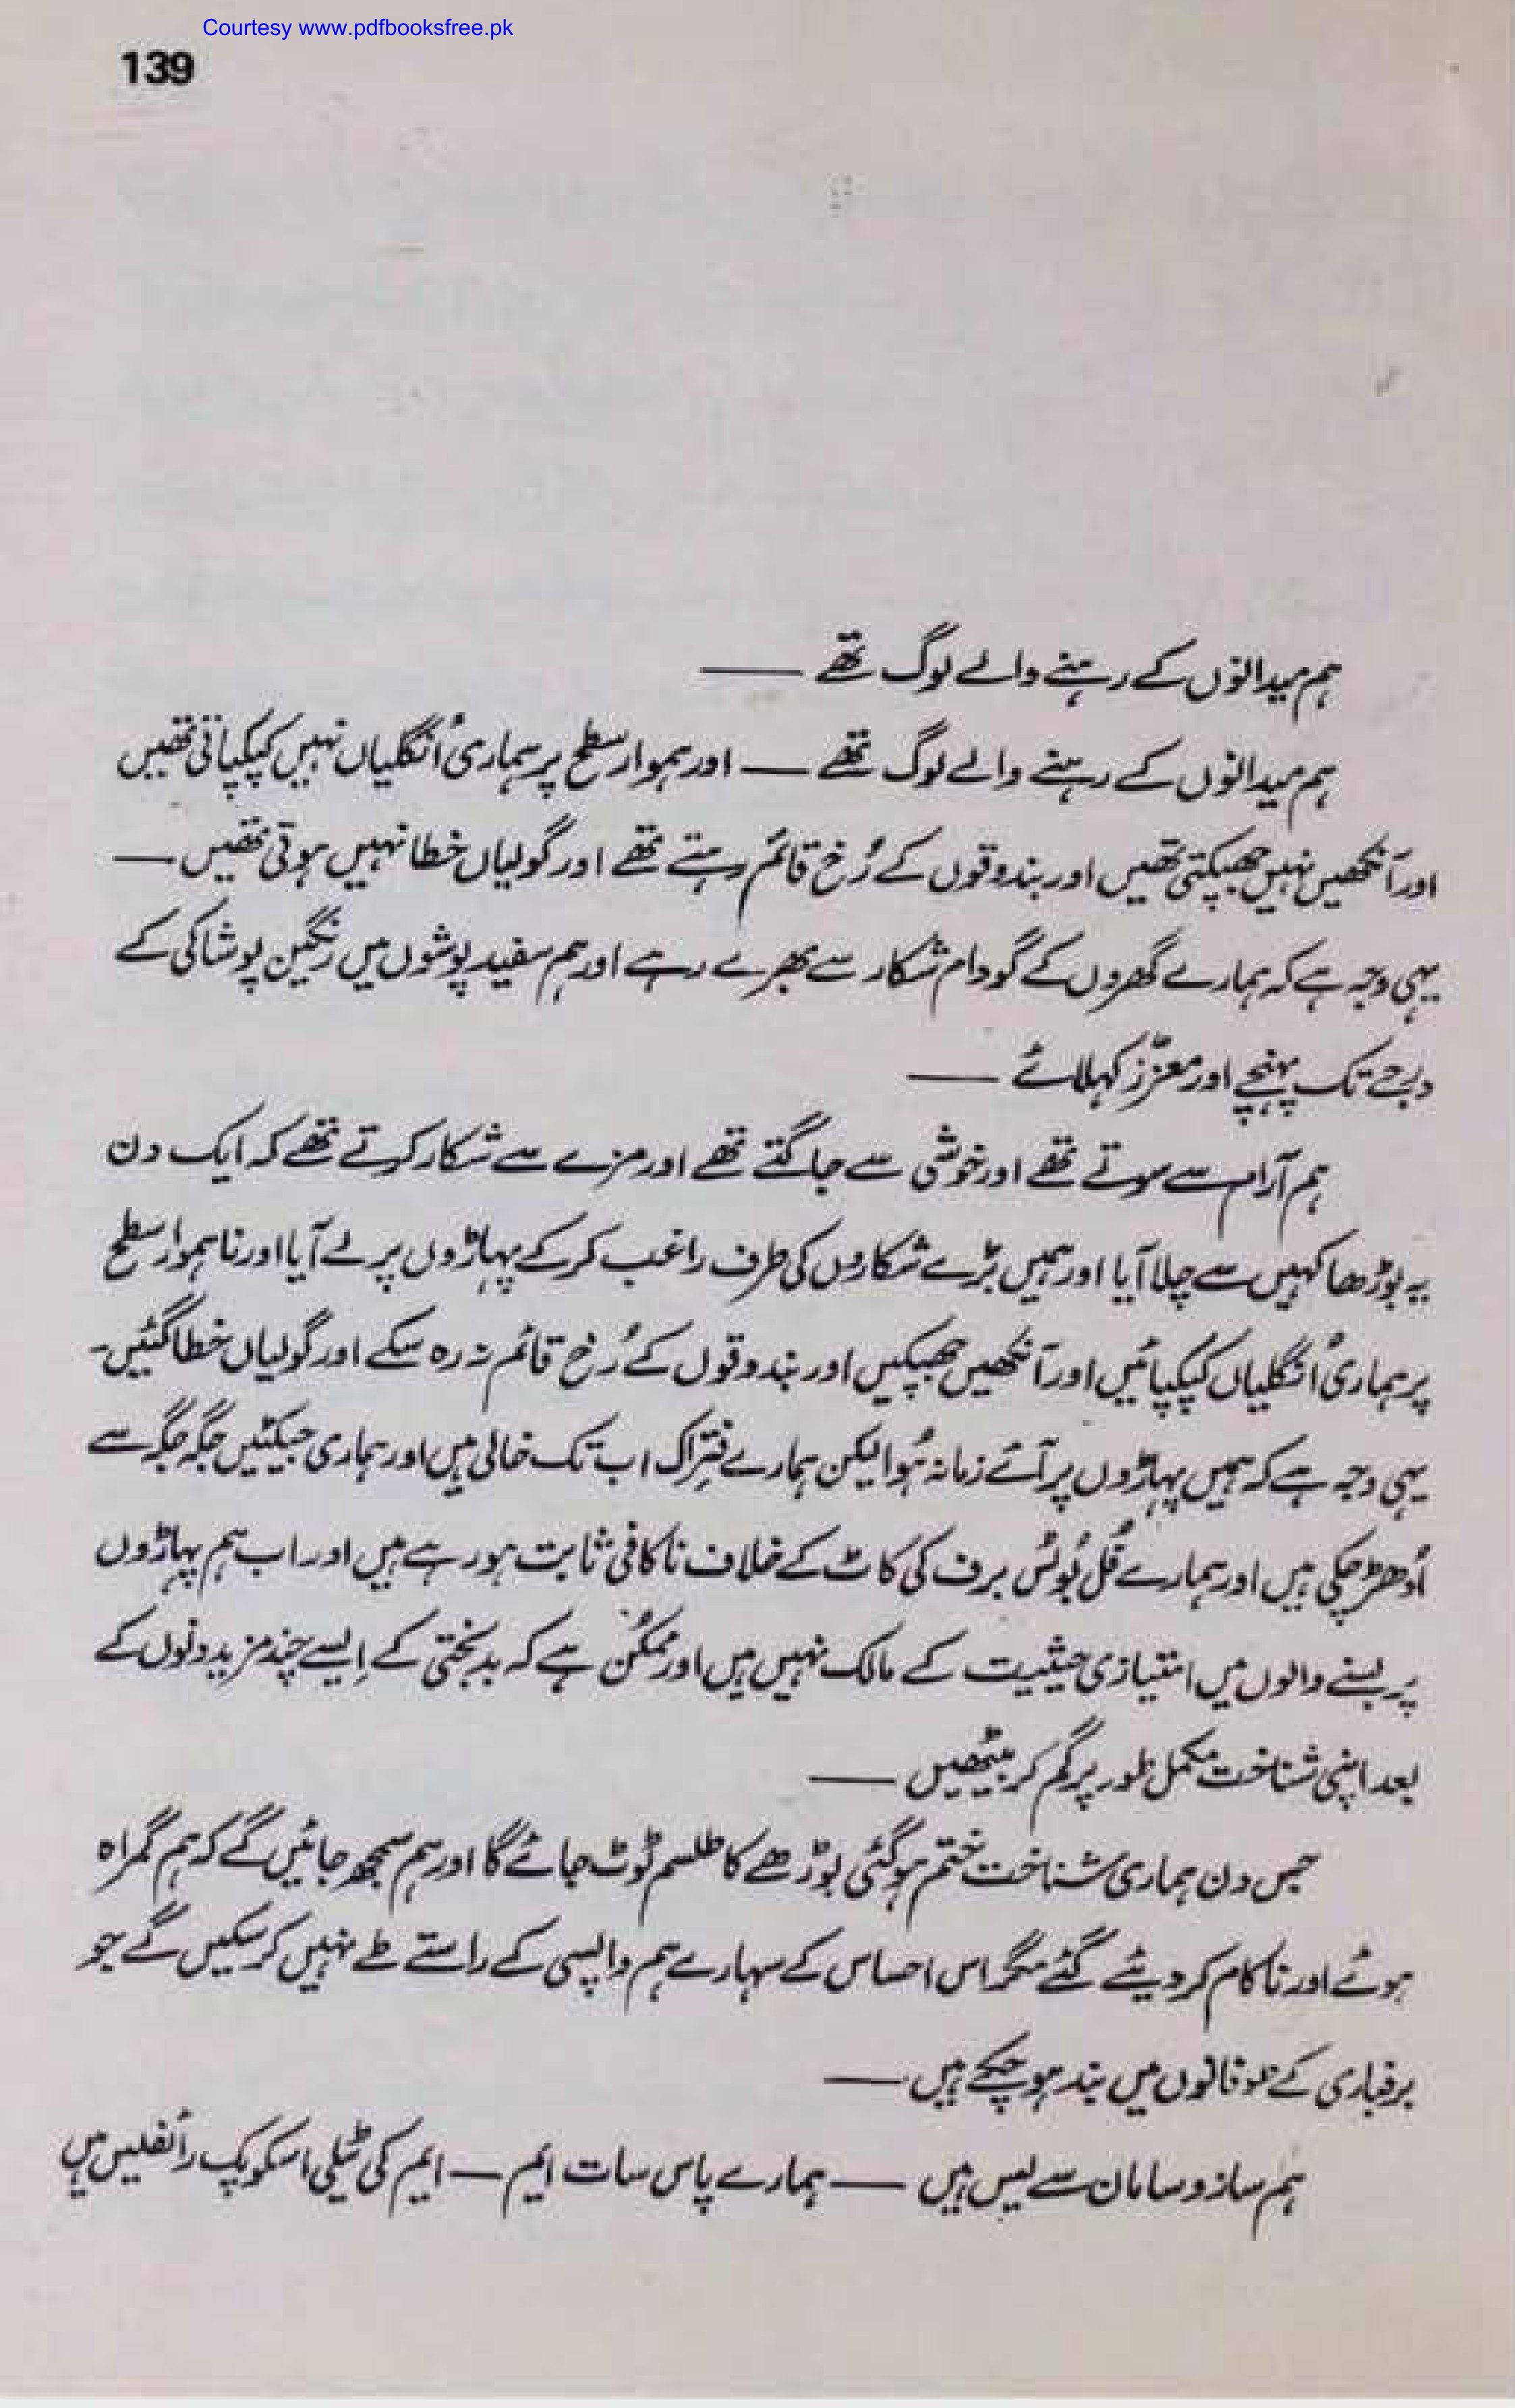 Courtesy www.pdfbooksfree.pk
139
ہم میدانوں کے رہنے والے لوگ تھے ——
ہم میدانوں کے رہنے والے لوگ تھے — اور ہموار سطح پر ہماری اُنگلیاں نہیں کپکپاتی تھیں
اور آنکھیں نہیں جھپکتی تھیں اور بندوقوں کے رُخ قائم رہتے تھے اور گولیاں خطا نہیں ہوتی تھیں —
یہی وجہ ہے کہ ہمارے گھروں کے گودام شکار سے بھرے رہے اور ہم سفید پوشوں میں رنگین پوشاکی کے
درجے تک پہنچے اور معزّز کہلائے ——
ہم آرام سے سوتے تھے اور خوشی سے جاگتے تھے اور مزے سے شکار کرتے تھے کہ ایک دن
یہ بوڑھا کہیں سے چلا آیا اور ہمیں بڑے شکاروں کی طرف راغب کر کے پہاڑوں پر لے آیا اور ناہموار سطح
پر ہماری اُنگلیاں کپکپائیں اور آنکھیں جھپکیں اور بندوقوں کے رُخ قائم نہ رہ سکے اور گولیاں خطا گئیں۔
یہی وجہ ہے کہ ہمیں پہاڑوں پر آئے زمانہ ہُوا لیکن ہمارے فتراک اب تک خالی ہیں اور ہماری جیکٹیں جگہ جگہ سے
اُدھڑ چکی ہیں اور ہمارے فُل بُوٹس برف کی کاٹ کے خلاف ناکافی ثابت ہو رہے ہیں اور اب ہم پہاڑوں
پر بسنے والوں میں امتیازی حیثیت کے مالک نہیں ہیں اور ممکن ہے کہ بدبختی کے اِیسے چند مزید دنوں کے
بعد اپنی شناخت مکمل طور پر گم کر بیٹھیں ——
جس دن ہماری شناخت ختم ہو گئی بوڑھے کا طلسم ٹوٹ جائے گا اور ہم سمجھ جائیں گے کہ ہم گمراہ
ہوئے اور ناکام کر دیئے گئے مگر اس احساس کے سہارے ہم واپسی کے راستے طے نہیں کر سکیں گے جو
برفباری کے طوفانوں میں بند ہو چکے ہیں ——
ہم ساز و سامان سے لیس ہیں —— ہمارے پاس سات ایم — ایم کی ٹیلی اسکوپک رائفلیں ہیں